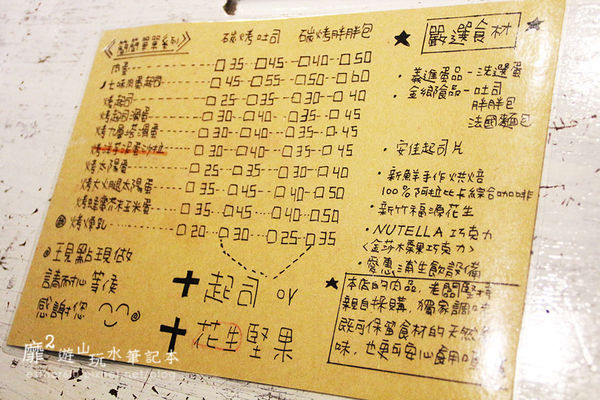 《簡簡單單系列》 碳烤吐司 碳烤胖胖包
肉蛋 35 45 40 50
七味肉蛋起司 45 55 50 60
烤起司 25 35 30 40
烤起司滑蛋 30 40 35 45
烤九層塔滑蛋 30 40 35 45
30 40 35 45
烤太陽蛋 25 35 30 40
烤火腿太陽蛋 35 45 40 50
烤蜂蜜芥末玉米蛋 35 45 40 50
烤煉乳 20 30 25 35
現點現做
請耐心等候
感謝您
+起司 or
+花生堅果
★ 嚴選食材
• 義進蛋品-洗選蛋
• 金鄉食品-吐司
胖胖包
法國麵包
• 安佳起司片
• 新鮮手作烘焙
100%阿拉比卡綜合咖啡
• 新竹福源花生
• NUTELLA 巧克力
<金莎榛果巧克力>
• 愛惠浦生飲設備
★ 本店的肉品,老闆堅
親自採購,獨家調
既可保留食材的天然
味,也更可安心食用
靡²遊山玩水筆記本